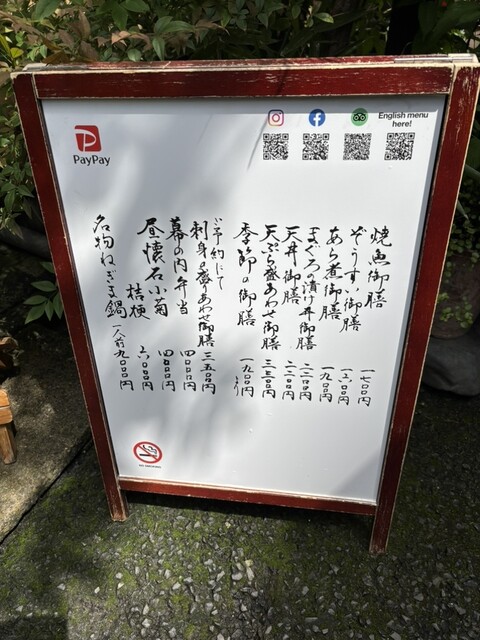 PayPay
English menu
here!
焼魚御膳 一七〇〇円
ぞうすい御膳 一六〇〇円
あら煮御膳 一九〇〇円
まぐろ漬け丼御膳 二二〇〇円
天丼御膳 二二〇〇円
天ぷら盛あわせ御膳 三三〇〇円
季節の御膳 一九〇〇円より
ご予約にて
刺身の盛りあわせ御膳 三五〇〇円
幕の内弁当 四〇〇〇円
昼懐石小菊 四〇〇〇円
桔梗 六〇〇〇円
名物ねぎま鍋 一人前九〇〇〇円
NO SMOKING